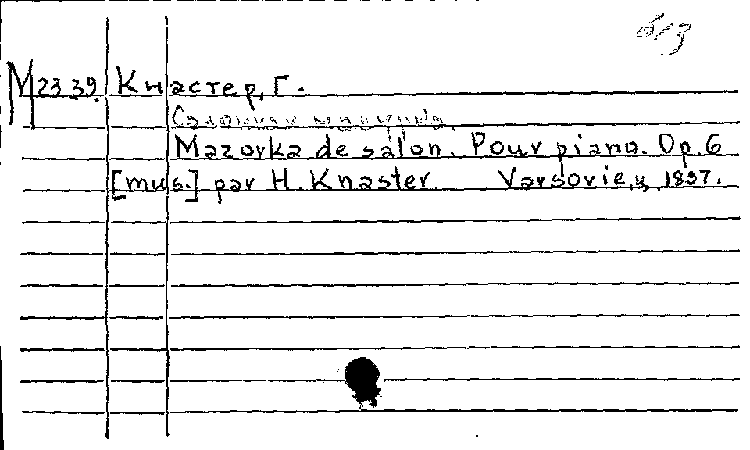 М 23 39 Кнастер, Г.
Салонная мазурка.
Mazorka de salon. Pour piano. Op. 6
[mus.] par H. Knaster. Varsovie, 1897.